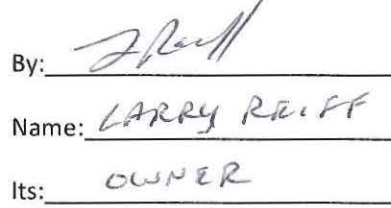 By:
Name: LARRY REIFF
Its: OWNER